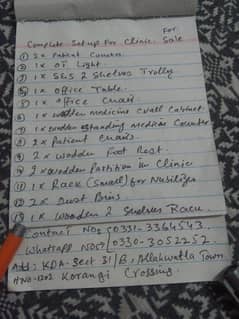 Complete Setup For Clinic For Sale
① 3x Patient Couches
② 1x OT Light
③ 1x S&S 2 Shelves Trolly
④ 1x Office Table
⑤ 1x Office Chair
⑥ 1x Wooden medicine Wall Cabinet
⑦ 1x Wooden Standing Medicine Counter
⑧ 2x Patient Chairs
⑨ 2x Wooden Foot Rest
⑩ 2x Wooden Partition in Clinic
⑪ 1x Rack (Small) for Nubilizer
⑫ 2x Dust Bins
⑬ 1x Wooden 2 Shelves Rack
Contact No: 0331-3364543
Whatsapp No: 0330-3052252
Add: KDA- Sect 31/B, Allahwalla Town
HNO-1202 Korangi Crossing